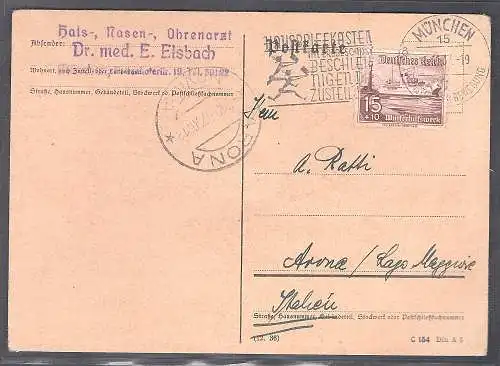 Hals-, Nasen-, Ohrenarzt
Absender: Dr. med. E. Eisbach
Wohnort,
Straße, Hausnummer, Gebäudeteil, Stockwerk od. Postschließfachnummer
Postkarte
HAUSBRIEFKASTEN
BESCHLEU
NIGEN
ZUSTELL
MÜNCHEN
15
Deutsches Reich
15
+10 Winterhilfswerk
ARONA
Herrn
A. Ratti
Arona / Lago Maggiore
Italien
Straße, Hausnummer, Gebäudeteil, Stockwerk oder Postschließfachnummer
(12. 36)
C 154 Din A 6